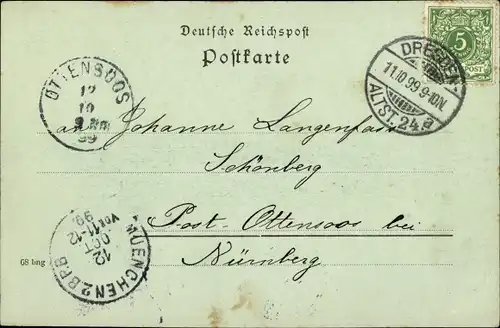 Deutsche Reichspost
Postkarte
5
DRESDEN-
11.10.99.9-10N.
ALTST.24.a
OTTENSOOS
12
10
99
an Johanne Langenfass
Schönberg
Post-Ottensoos bei
Nürnberg
MUENCHEN 2 B.P.B
12
OCT
VOR 11-12
99.
68 bng